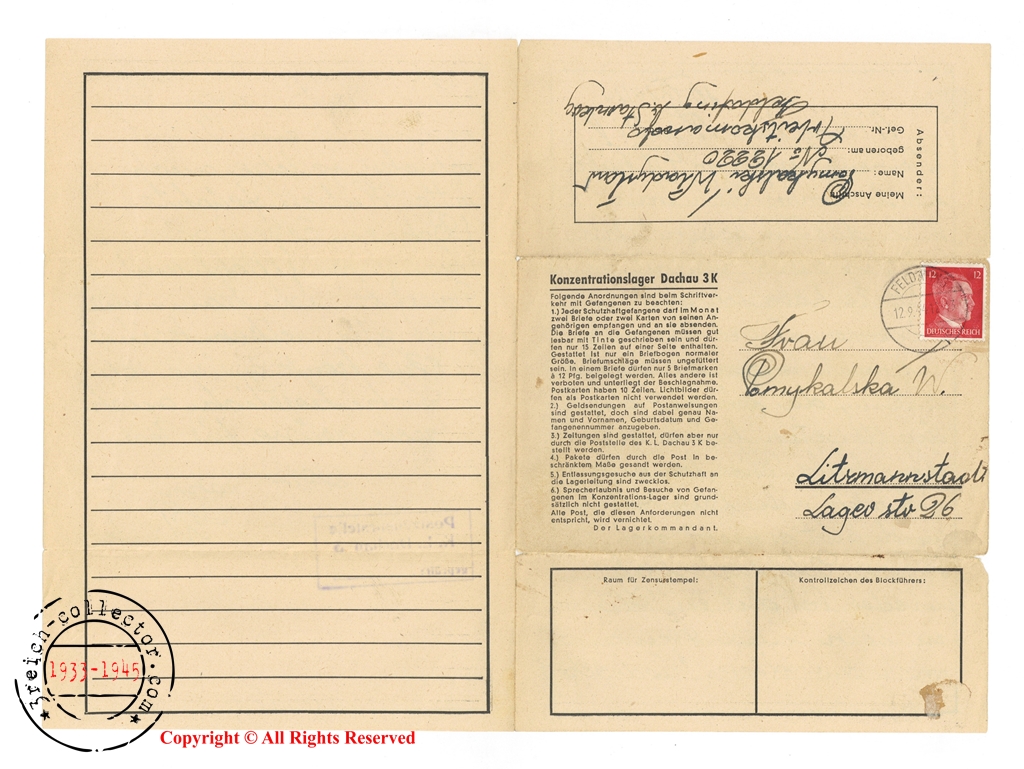 Absender:
Meine Anschrift:
Name: Cmykalski Wladyslaw
geboren am: № 12220
Gef.-Nr. Arbeitskomando
Feldafing b. Starnberg
Konzentrationslager Dachau 3 K
Folgende Anordnungen sind beim Schriftver-
kehr mit Gefangenen zu beachten:
1.) Jeder Schutzhaftgefangene darf im Monat
zwei Briefe oder zwei Karten von seinen An-
gehörigen empfangen und an sie absenden.
Die Briefe an die Gefangenen müssen gut
lesbar mit Tinte geschrieben sein und dür-
fen nur 15 Zeilen auf einer Seite enthalten.
Gestattet ist nur ein Briefbogen normaler
Größe. Briefumschläge müssen ungefüttert
sein. In einem Briefe dürfen nur 5 Briefmarken
à 12 Pfg. beigelegt werden. Alles andere ist
verboten und unterliegt der Beschlagnahme.
Postkarten haben 10 Zeilen. Lichtbilder dür-
fen als Postkarten nicht verwendet werden.
2.) Geldsendungen auf Postanweisungen
sind gestattet, doch sind dabei genau Na-
men und Vornamen, Geburtsdatum und Ge-
fangenennummer anzugeben.
3.) Zeitungen sind gestattet, dürfen aber nur
durch die Poststelle des K. L. Dachau 3 K be-
stellt werden.
4.) Pakete dürfen durch die Post in be-
schränktem Maße gesandt werden.
5.) Entlassungsgesuche aus der Schutzhaft an
die Lagerleitung sind zwecklos.
6.) Sprecherlaubnis und Besuche von Gefan-
genen im Konzentrations-Lager sind grund-
sätzlich nicht gestattet.
Alle Post, die diesen Anforderungen nicht
entspricht, wird vernichtet.
Der Lagerkommandant.
12 12
DEUTSCHES REICH
12.9.
Frau
Cmykalska W.
Litzmannstadt
Lager str 26
Raum für Zensurstempel:
Kontrollzeichen des Blockführers:
3reich-collector.com
1933-1945
Copyright © All Rights Reserved